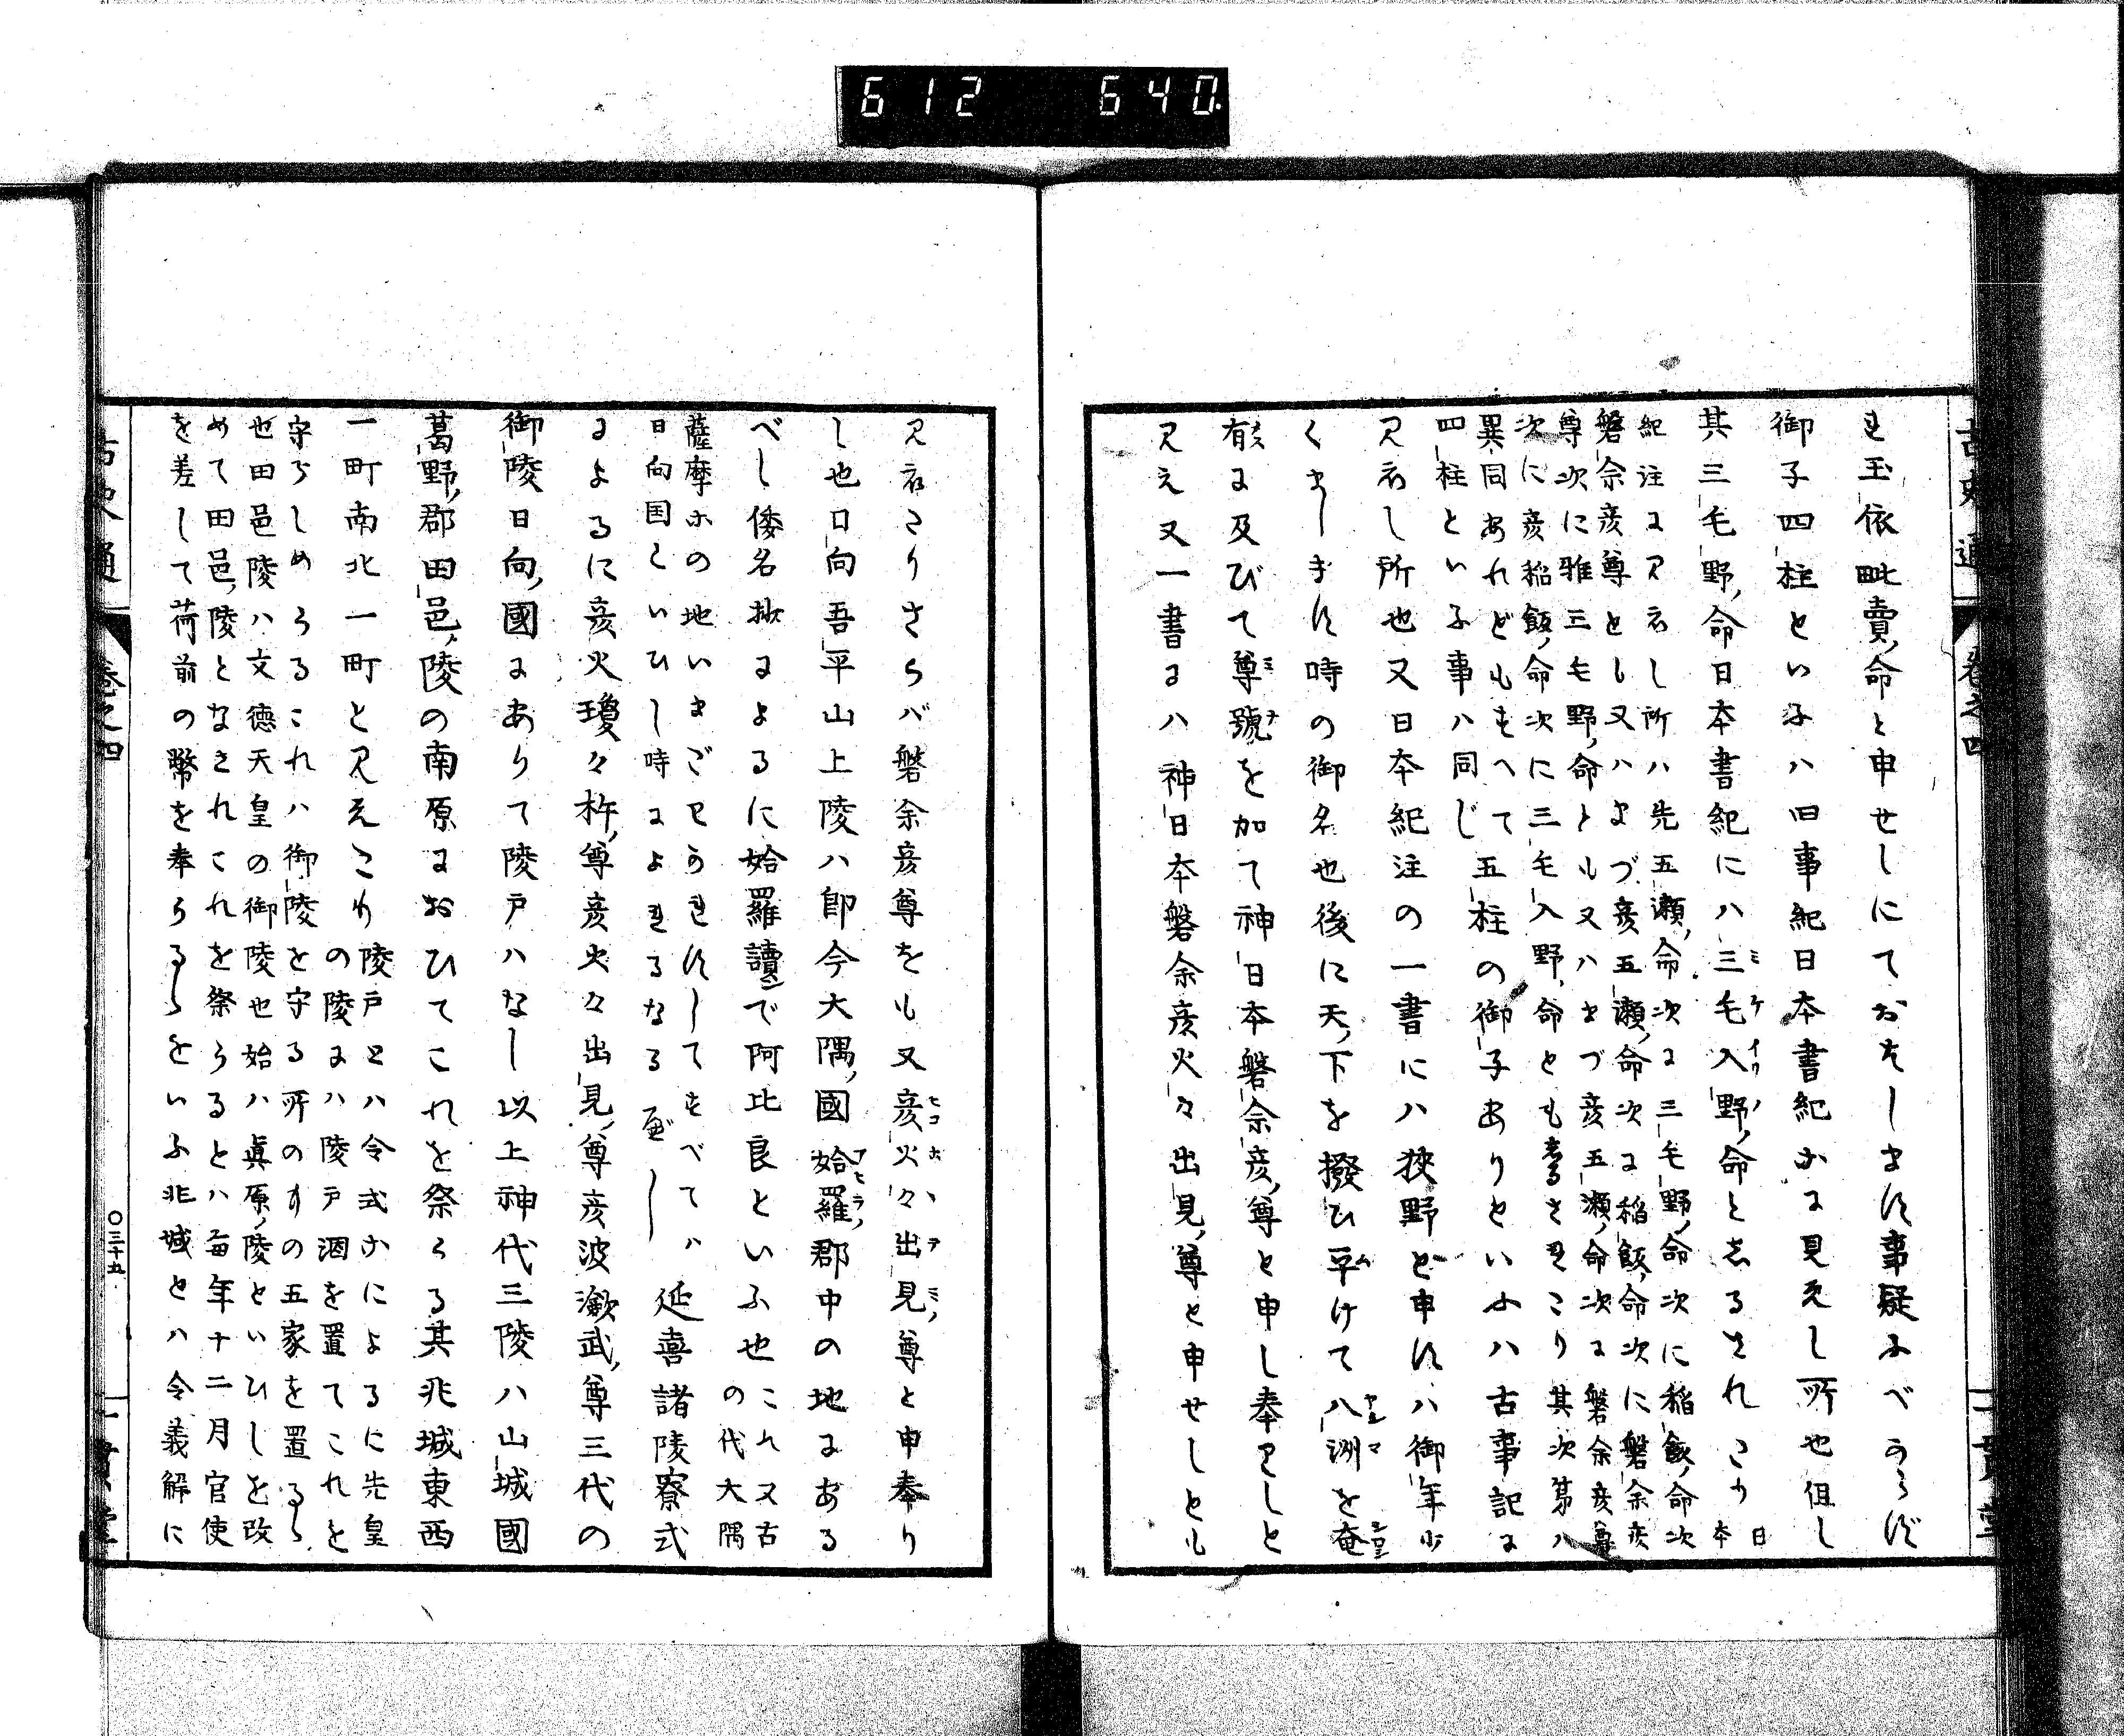 612 640
古史通 卷之四
れ玉依毗賣命と申せしにておはします事疑ふべからず
御子四柱といふハ旧事紀日本書紀等に見えし所也但し
其三毛野命日本書紀にハ三毛入野命としるされたり日本
紀注に見えし所ハ先五瀬命次に三毛野命次に稲飯命次
磐余彦尊とし又ハまづ彦五瀬命次に稲飯命次に磐余彦
尊次に稚三毛野命とも又ハまづ彦五瀬命次に磐余彦尊
次に彦稲飯命次に三毛入野命ともしるされたり其次第ハ
異同あれどもすべて五柱の御子ありといふハ古事記に
四柱といふ事ハ同じ
見えし所也又日本紀注の一書にハ狹野と申すハ御年少
くまします時の御名也後に天下を撥ひ平けて八洲を奄
有に及びて尊號を加て神日本磐余彦尊と申し奉りしと
見え又一書にハ神日本磐余彦火々出見尊と申せしとも
見えたりさらバ磐余彦尊をも又彦火々出見尊と申奉り
し也日向吾平山上陵ハ即今大隅國姶羅郡中の地にある
べし倭名抄によるに姶羅讀で阿比良といふ也これ又古の代大隅
薩摩等の地いまだわかれずしてすべてハ
日向国といひし時によれるなるべし
延喜諸陵寮式
によるに彦火瓊々杵尊彦火々出見尊彦波瀲武尊三代の
御陵日向國にありて陵戸ハなし以上神代三陵ハ山城國
葛野郡田邑陵の南原におひてこれを祭らる其兆域東西
一町南北一町と見えたり陵戸とハ令式等によるに先皇
の陵にハ陵戸酒を置てこれを
守らしめらるこれハ御陵を守る所のものの五家を置るゝ
也田邑陵ハ文徳天皇の御陵也始ハ眞原陵といひしを改
めて田邑陵となされたれこれを祭らるとハ毎年十二月官使
を差して荷前の幣を奉らるゝをいふ兆域とハ令義解に
古史通 卷之四 〇三十九